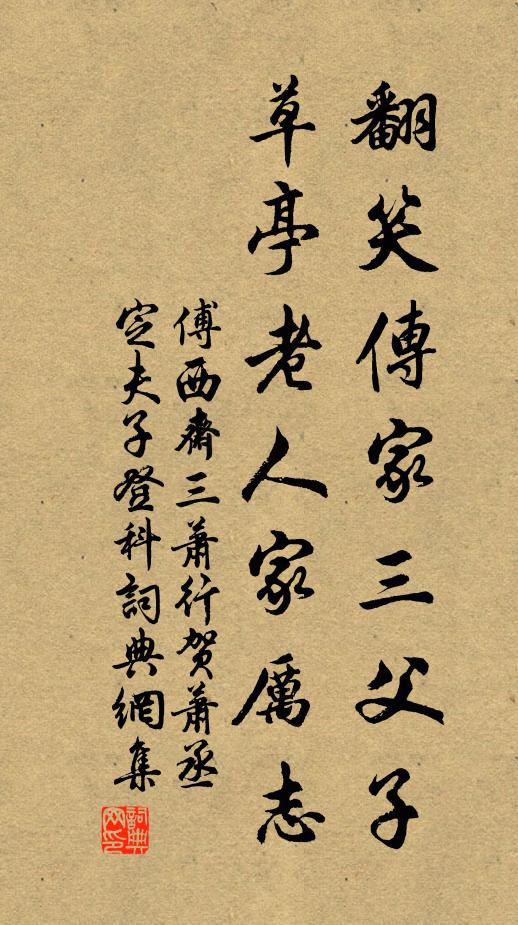 翻笑傳家三父子
草亭老人家厲志
傅西齋三蕭行賀蕭丞
定夫子登科詞典網集
詞典網印